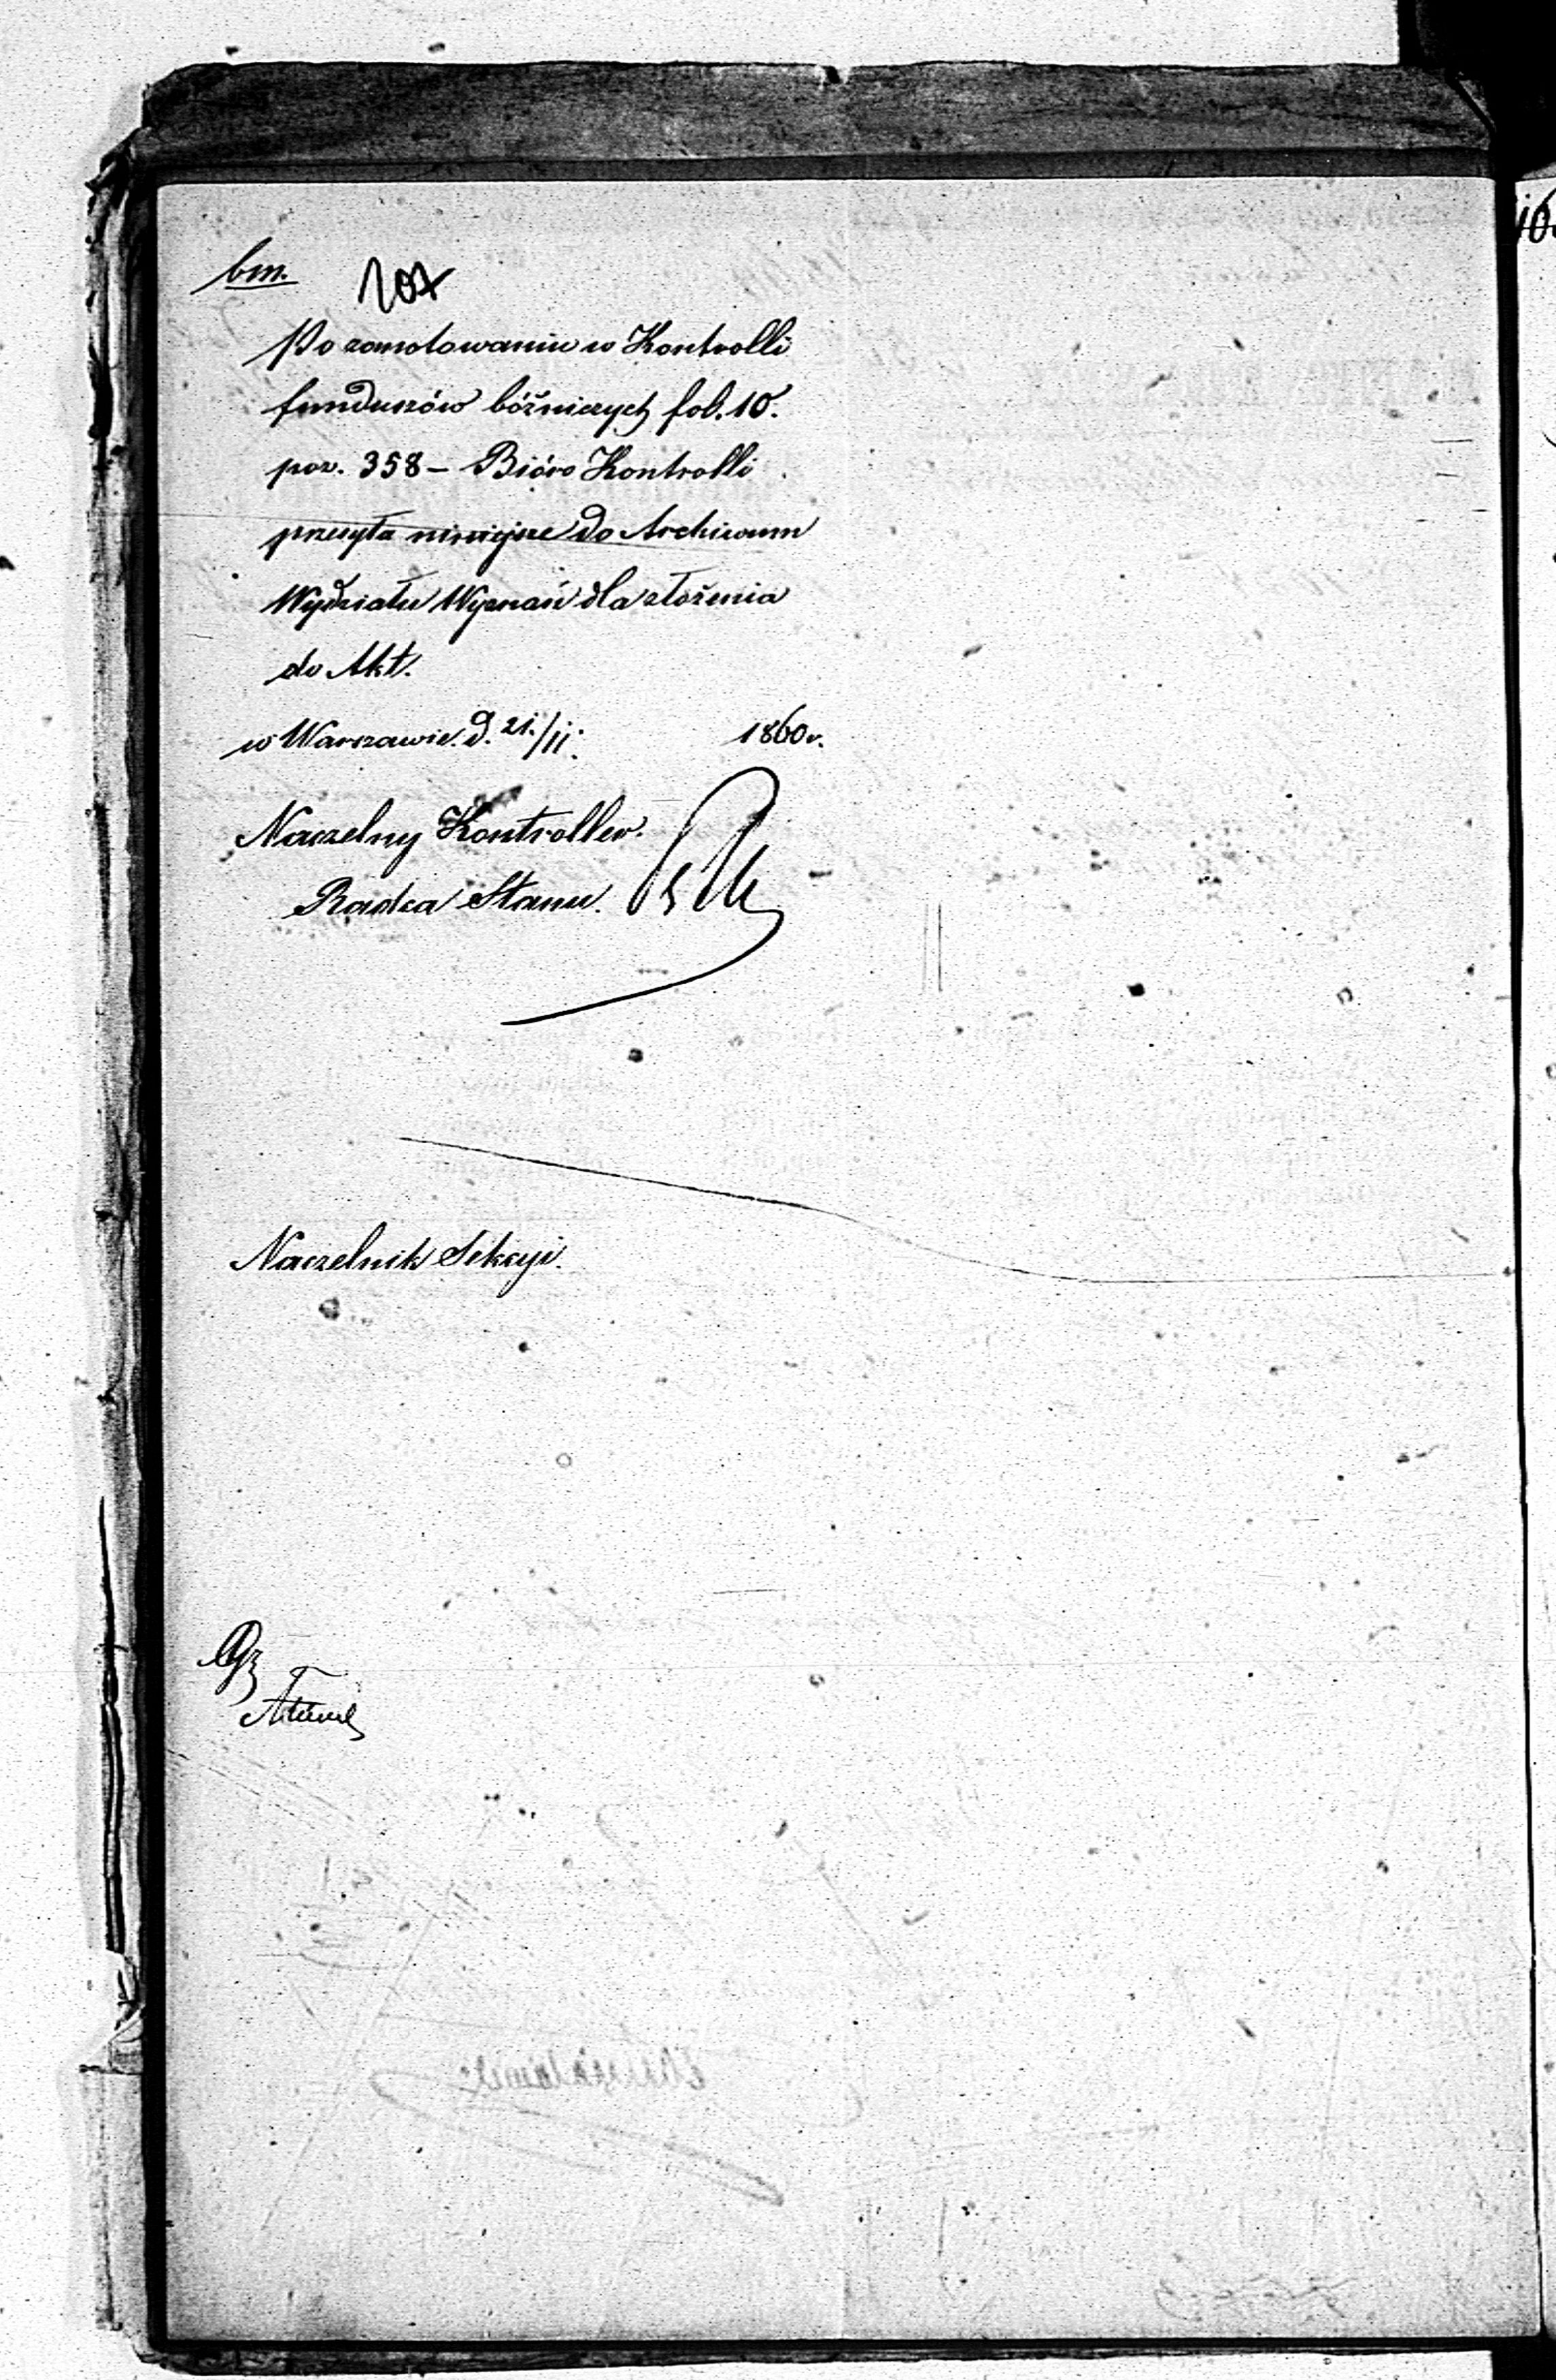 bm. 107
Po zanotowaniu w Kontrolli
funduszów bóżniczych fol. 10.
poz. 358 – Bióro Kontrolli
przesyła niniejsze do Archiwum
Wydziału Wyznań dla złożenia
do Akt.
w Warszawie. d. 21./11. 1860 r.
Naczelny Kontroller.
Radca Stanu.
Naczelnik Sekcyi.